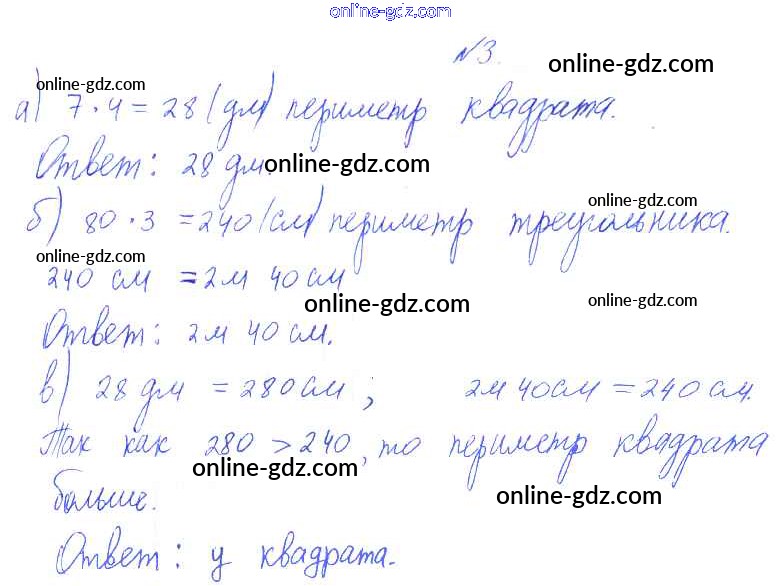 online-gdz.com
№3. online-gdz.com
online-gdz.com
а) 7 · 4 = 28 (дм) периметр квадрата.
Ответ: 28 дм. online-gdz.com
online-gdz.com
б) 80 · 3 = 240 (см) периметр треугольника.
online-gdz.com
240 см = 2м 40 см
online-gdz.com online-gdz.com
Ответ: 2м 40 см.
в) 28 дм = 280 см ; 2м 40см = 240 см.
Так как 280 > 240, то периметр квадрата
online-gdz.com
больше. online-gdz.com
Ответ: у квадрата.